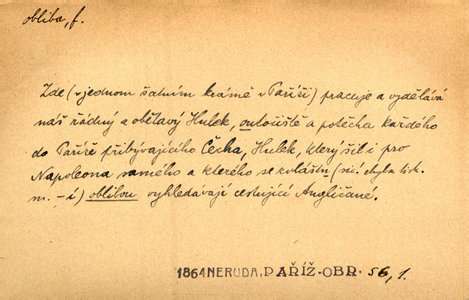 obliba, f.
Zde (v jednom šatním krámě v Paříži) pracuje a vydělává
náš řádný a obětavý Hulek, outočiště a potěcha každého
do Paříže přibývajícího Čecha, Hulek, který šil i pro
Napoleona samého a kterého se zvláštn (sic! chyba tisk.
m. -í) oblibou vyhledávají cestující Angličané.
1864 NERUDA, PAŘÍŽ-OBR. 56, 1.